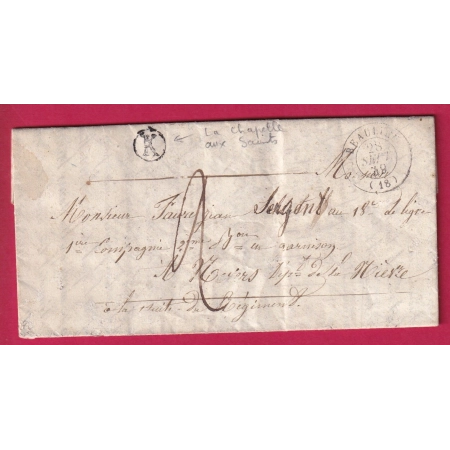 K
← La Chapelle
aux Saints
BEAULIEU
28
SEPT
(18)
Monsieur Faurejean Sergent au 18e Leger
1ere Compagnie 2me Bon en garnison
A Nevers Dept de la Nièvre
à la suite du Régiment.
2